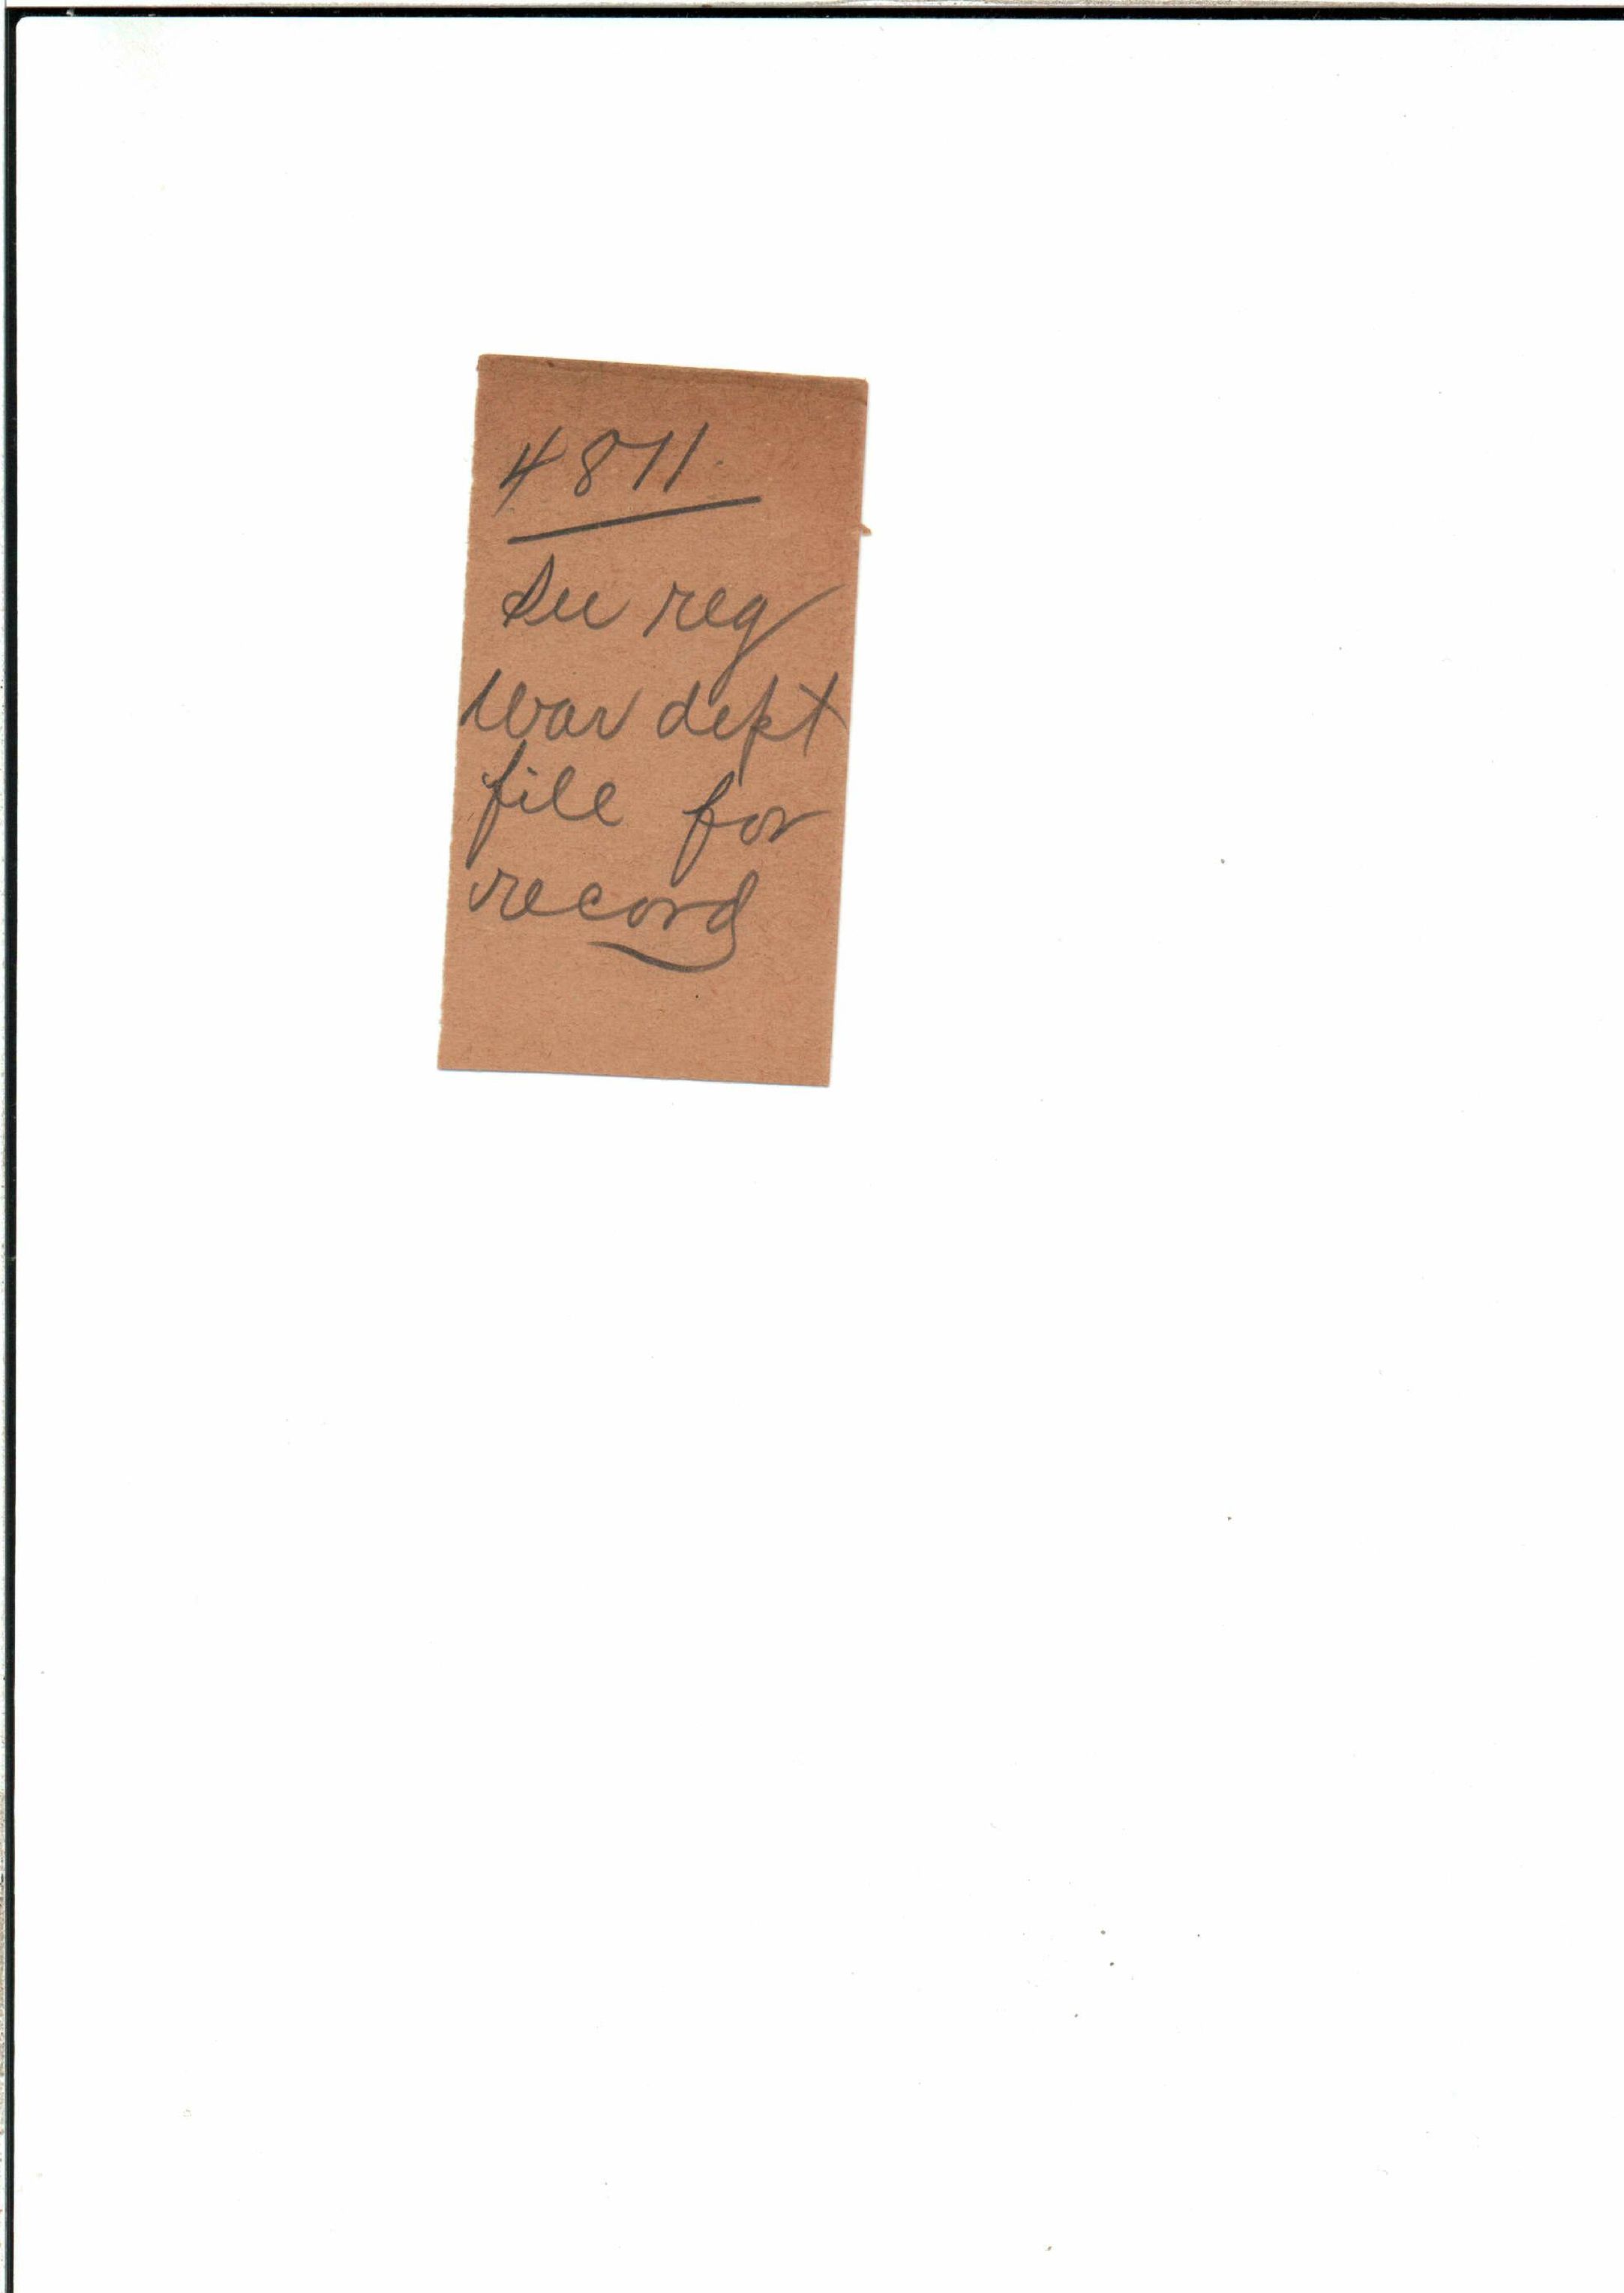 4871
See reg
War dept
file for
record